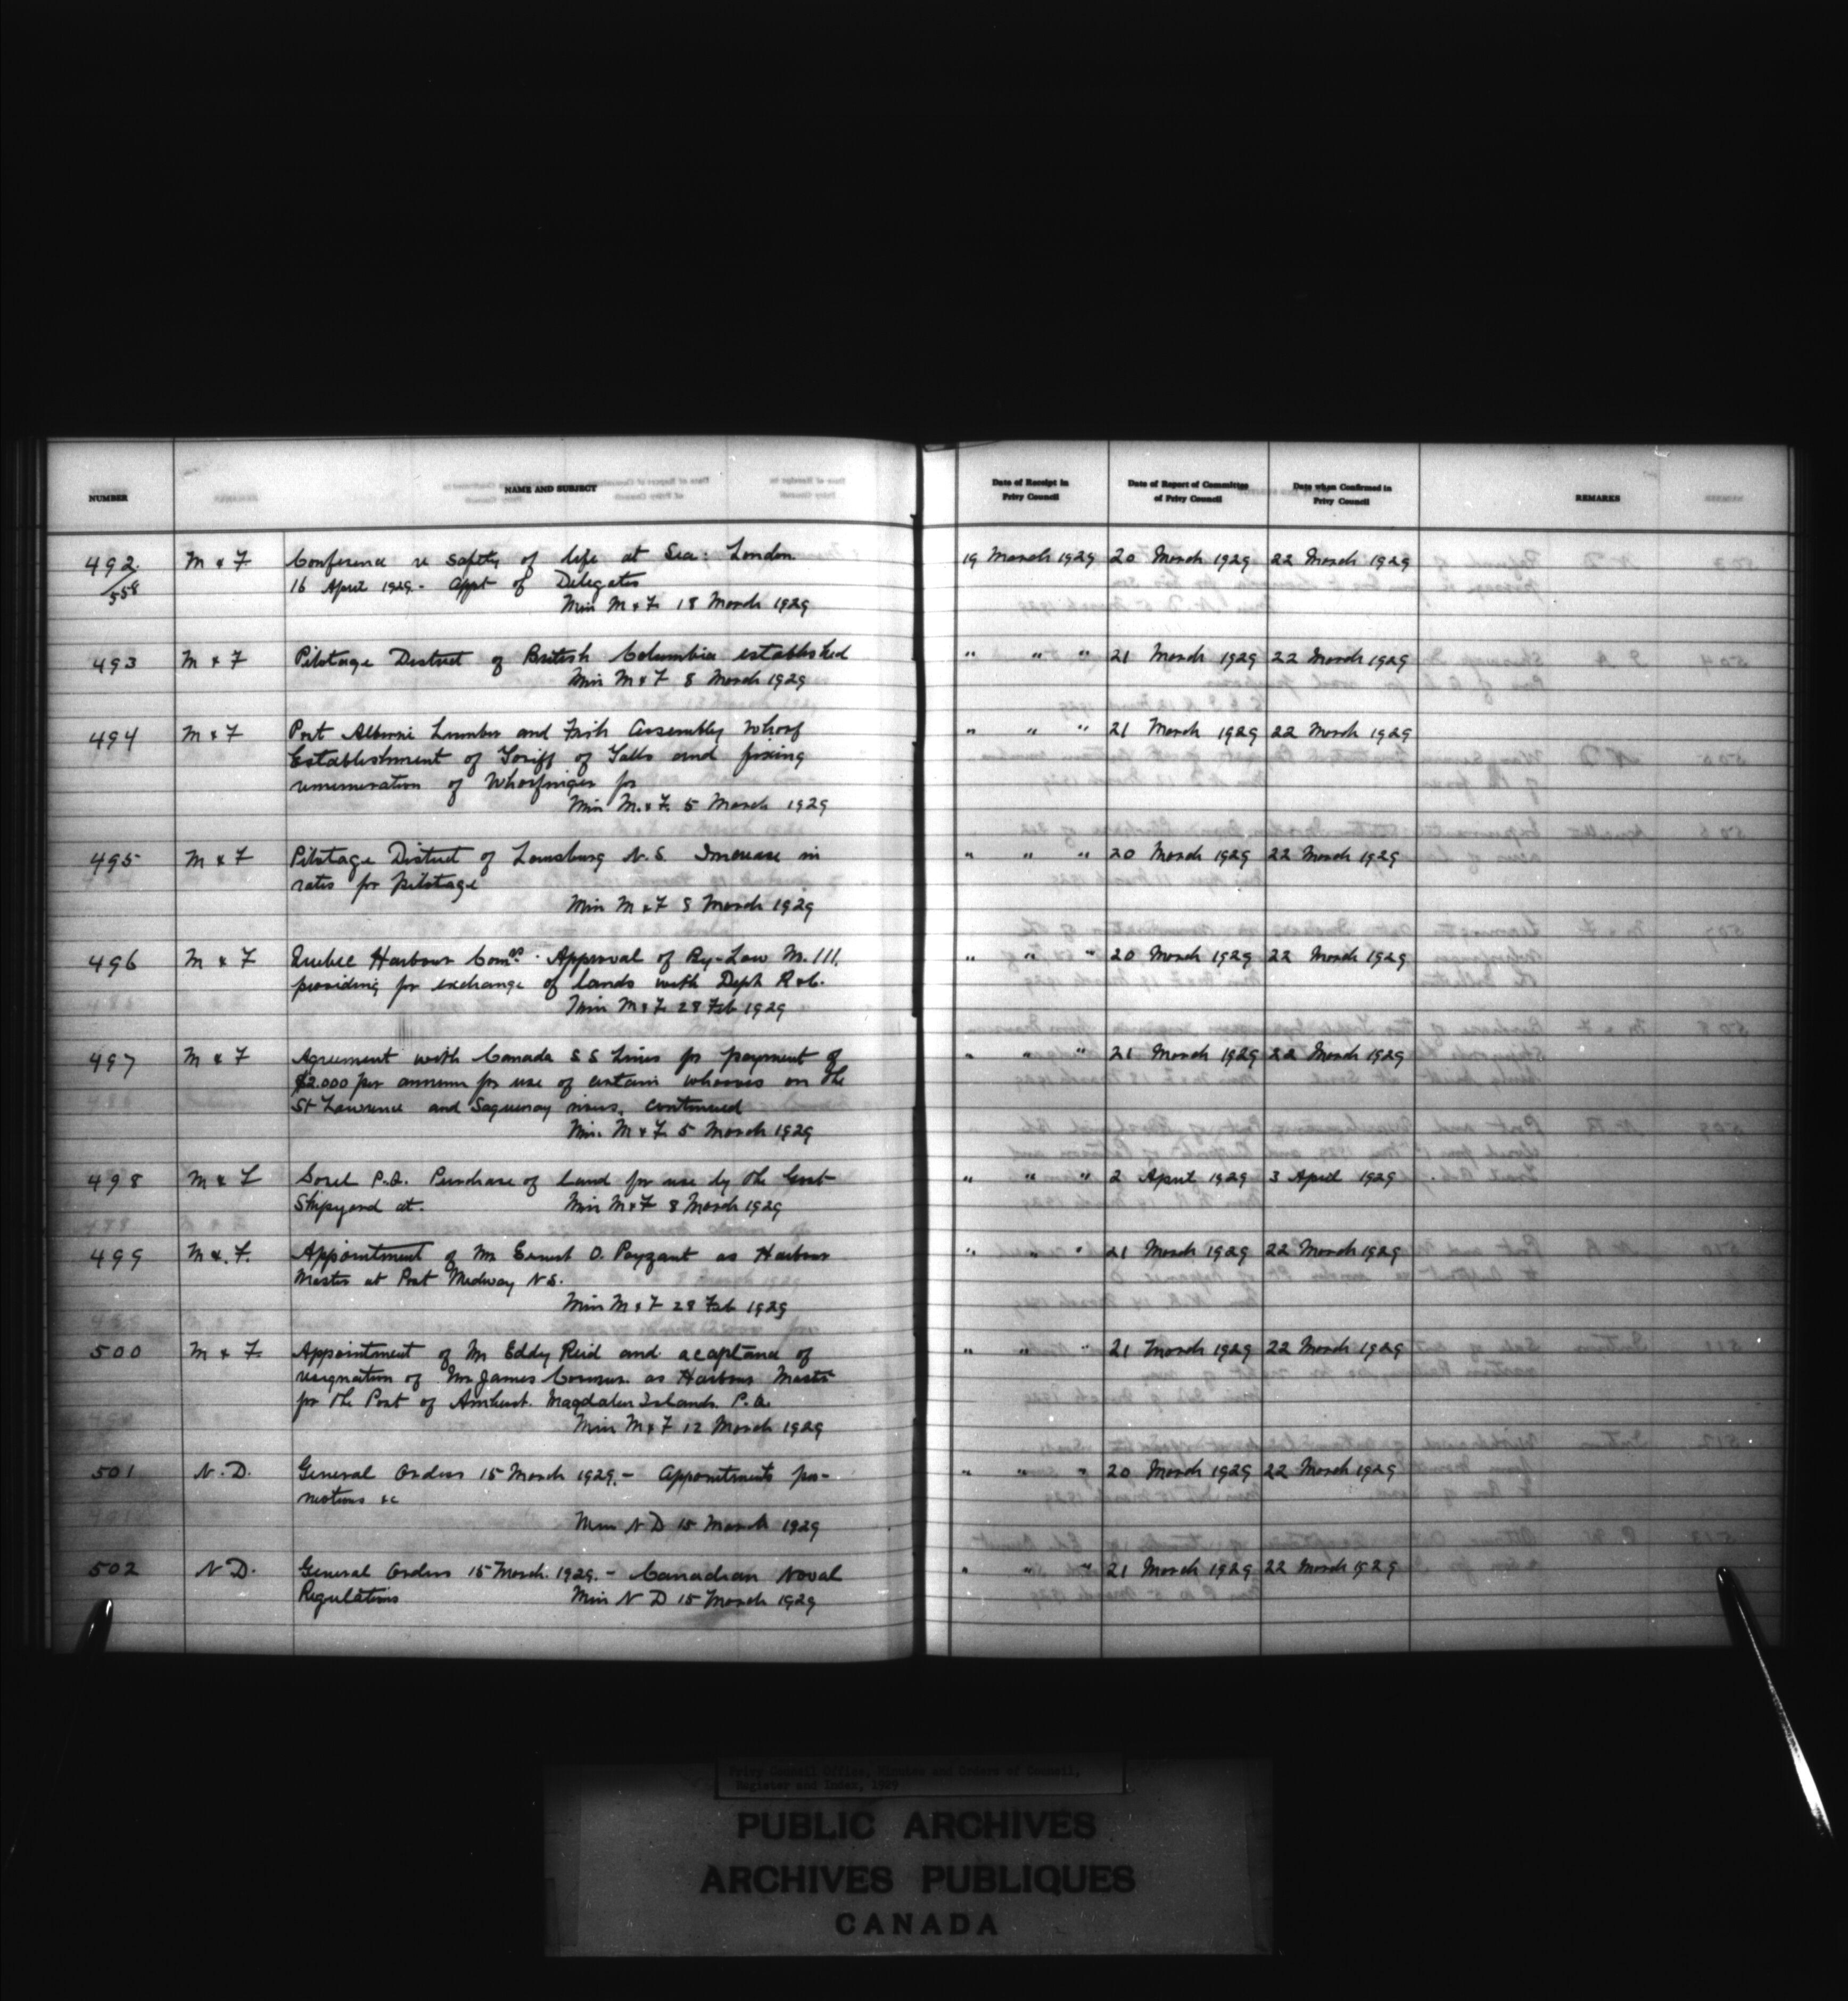 NUMBER NAME AND SUBJECT Date of Receipt in Privy Council Date of Report of Committee of Privy Council Date when Confirmed in Privy Council REMARKS
492 M & F Conference re safety of life at Sea: London 19 March 1929 20 March 1929 22 March 1929
/558 16 April 1929 - appt of Delegates
Min M & F 18 March 1929
493 M & F Pilotage District of British Columbia established " " " 21 March 1929 22 March 1929
Min M & F 8 March 1929
494 M & F Port Alberni Lumber and Fish Assembly Wharf " " " 21 March 1929 22 March 1929
Establishment of Tariff of Tolls and fixing
remuneration of Wharfinger for
Min M. & F. 5 March 1929
495 M & F Pilotage District of Louisburg N.S. Increase in " " " 20 March 1929 22 March 1929
rates for pilotage
Min M & F 8 March 1929
496 M & F Quebec Harbour Comrs. Approval of By-Law No. 111. " " " 20 March 1929 22 March 1929
providing for exchange of lands with Dept R & C.
Min M & F. 28 Feb 1929
497 M & F Agreement with Canada S S Lines for payment of " " " 21 March 1929 22 March 1929
$2.000 per annum for use of certain wharves on the
St Lawrence and Saguenay rivers, continued
Min. M & F. 5 March 1929
498 M & F Sorel P.Q. Purchase of land for use by the Govt " " " 2 April 1929 3 April 1929
Shipyard at. Min M & F 8 March 1929
499 M & F. Appointment of Mr Ernest O. Payzant as Harbour " " " 21 March 1929 22 March 1929
Master at Port Medway N.S.
Min M & F 28 Feb 1929
500 M & F. Appointment of Mr Eddy Reid and acceptance of " " " 21 March 1929 22 March 1929
resignation of Mr James as Harbour Master
for the Port of Amherst. Magdalen Islands. P.Q.
Min M & F 12 March 1929
501 N. D. General Orders 15 March 1929. - Appointments pro- " " " 20 March 1929 22 March 1929
motions &c
Min N D 15 March 1929
502 N D. General Orders 15 March. 1929. - Canadian Naval " " " 21 March 1929 22 March 1929
Regulations Min N D 15 March 1929
Privy Council Office, Minutes and Orders of Council,
Register and Index, 1929
PUBLIC ARCHIVES
ARCHIVES PUBLIQUES
CANADA